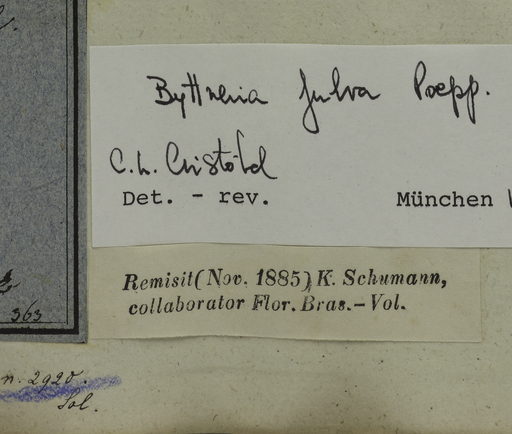 Byttneria fulva Poepp.
C. L. Cristóbal
Det. - rev. München
Remisit (Nov. 1885) K. Schumann,
collaborator Flor. Bras. - Vol.
363
n. 2920.
Sol.